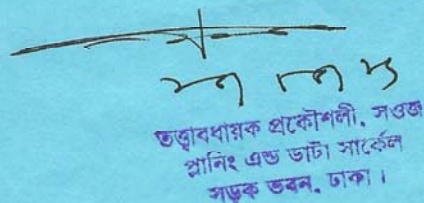 তত্ত্বাবধায়ক প্রকৌশলী, সওজ
প্লানিং এন্ড ডাটা সার্কেল
সড়ক ভবন, ঢাকা।